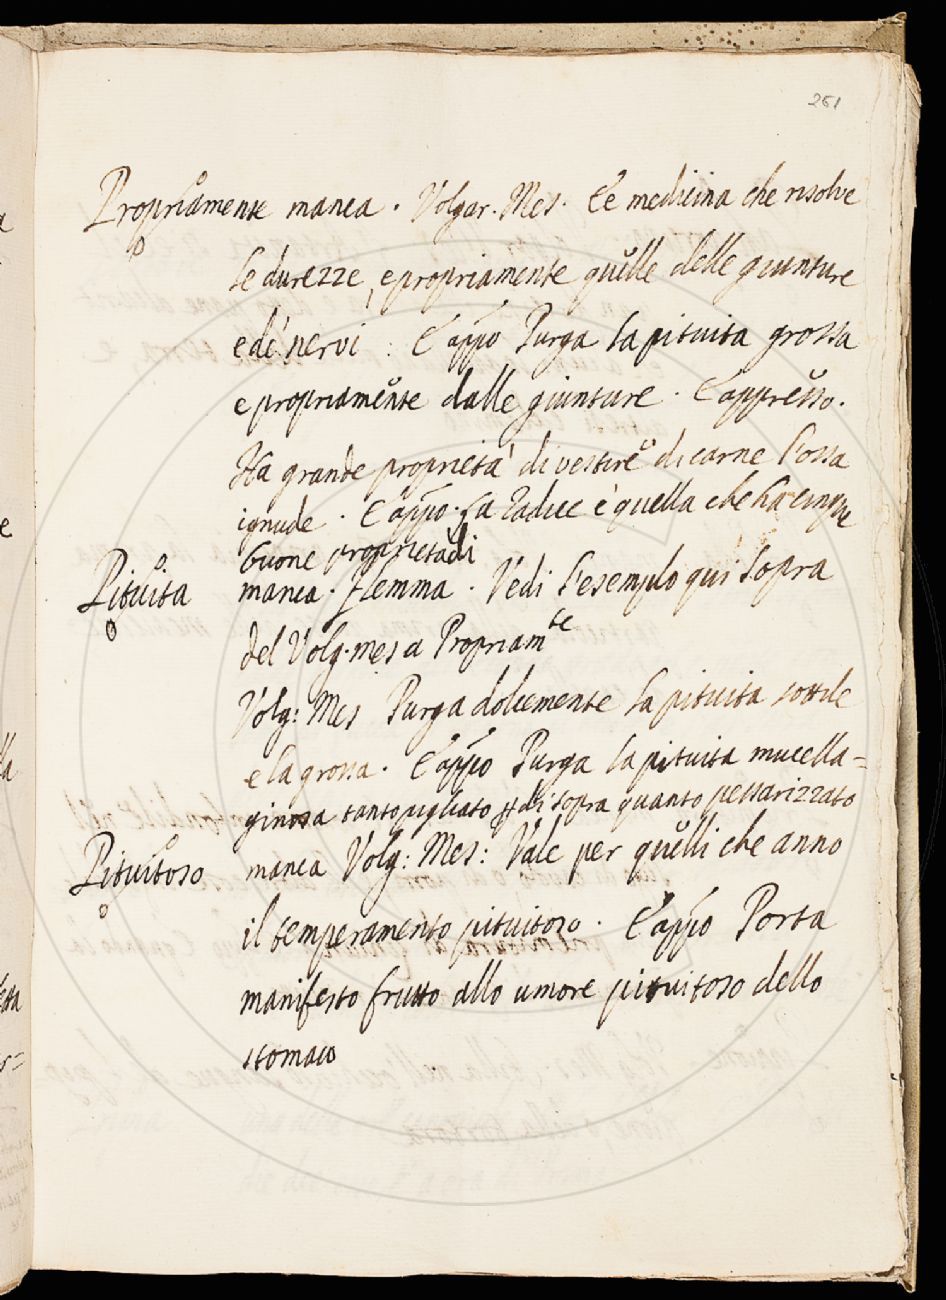 251
Propriamente manca. Volgar. Mes. E' medicina che risolve
le durezze, e propriamente quelle delle giunture
e de' nervi : E appo Purga la pituita grossa
e propriamente dalle giunture. E appresso.
Ha grande proprietà di vestire di carne l'ossa
ignude. E appo. La radice è quella che ha cinque
buone proprietà di
Pituita manca. Flemma. Vedi l'esemplo qui sopra
del Volg. mes a Propriamte
Volg: Mes Purga dolcemente la pituita sottile
e la grossa. E appo Purga la pituita mucella=
ginosa tanto pigliato p di sopra quanto pessarizzato
Pituitoso manca Volg: Mes: Vale per quelli che anno
il temperamento pituitoso. E appo Porta
manifesto frutto allo umore pituitoso dello
stomaco